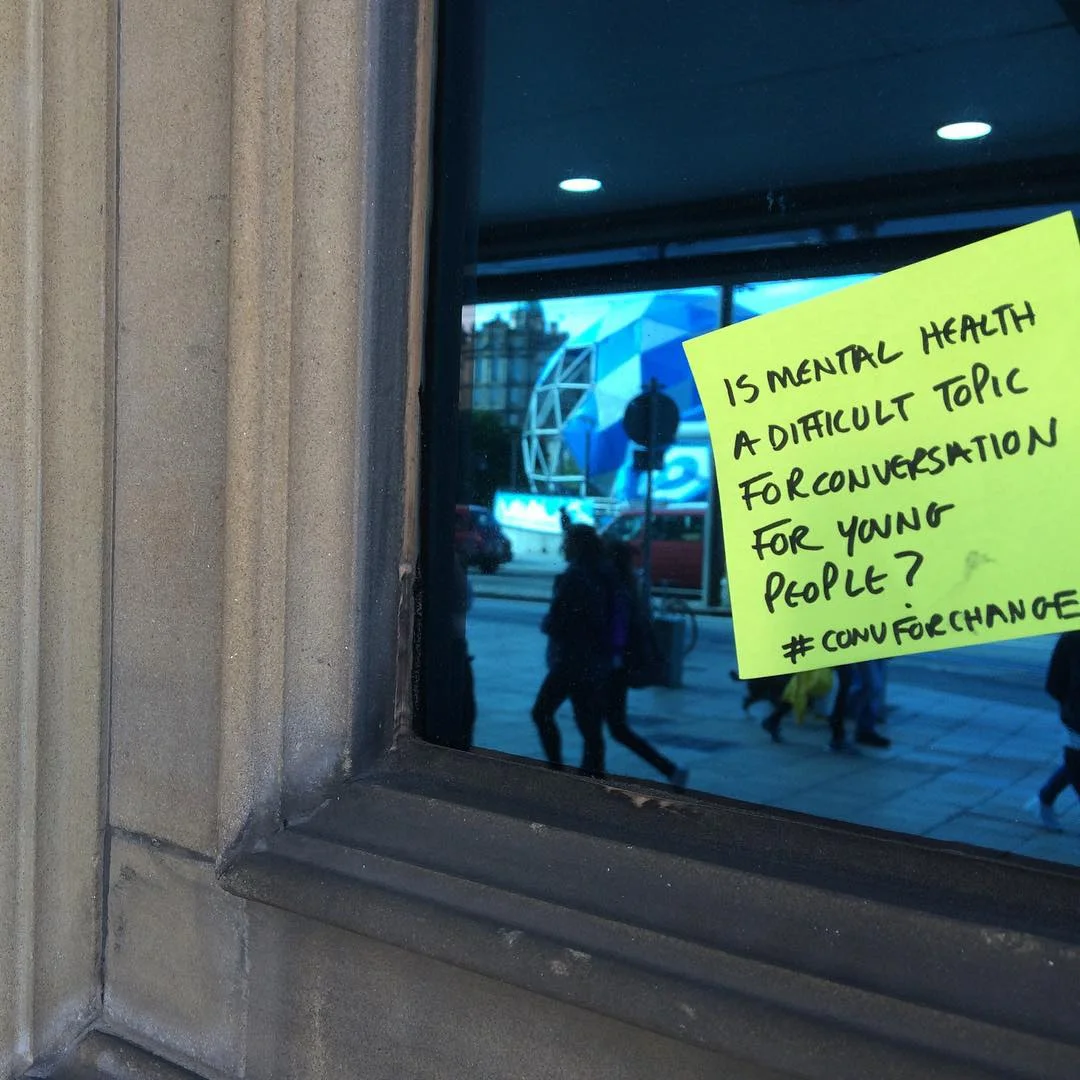 IS MENTAL HEALTH
A DIFFICULT TOPIC
FOR CONVERSATION
FOR YOUNG
PEOPLE?
#CONVFORCHANGE